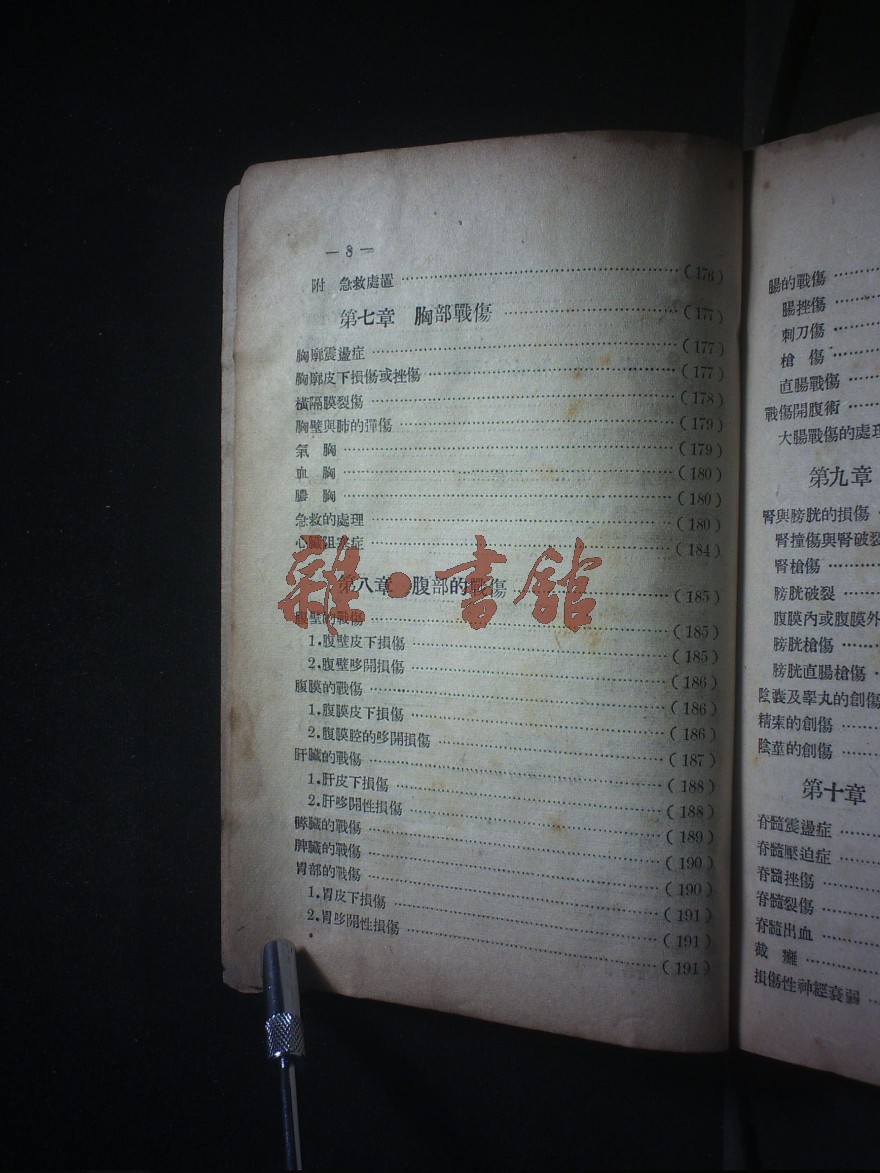 — 8 —
附 急救處置 ……(176)
第七章 胸部戰傷 ……(177)
胸廓震盪症 ……(177)
胸廓皮下損傷或挫傷 ……(177)
橫隔膜裂傷 ……(178)
胸壁與肺的彈傷 ……(179)
氣 胸 ……(179)
血 胸 ……(180)
膿 胸 ……(180)
急救的處理 ……(180)
心臟阻塞症 ……(184)
第八章 腹部的戰傷 ……(185)
腹壁的戰傷 ……(185)
1.腹壁皮下損傷 ……(185)
2.腹壁哆開損傷 ……(186)
腹膜的戰傷 ……(186)
1.腹膜皮下損傷 ……(186)
2.腹膜腔的哆開損傷 ……(187)
肝臟的戰傷 ……(188)
1.肝皮下損傷 ……(188)
2.肝哆開性損傷 ……(189)
膵臟的戰傷 ……(190)
脾臟的戰傷 ……(190)
胃部的戰傷 ……(191)
1.胃皮下損傷 ……(191)
2.胃哆開性損傷 ……(191)
雜·書館
腸的戰傷 ……
腸挫傷 ……
刺刀傷 ……
槍 傷 ……
直腸戰傷 ……
戰傷開腹術 ……
大腸戰傷的處理
第九章
腎與膀胱的損傷 …
腎撞傷與腎破裂
腎槍傷 ……
膀胱破裂 ……
腹膜內或腹膜外
膀胱槍傷 ……
膀胱直腸槍傷 …
陰囊及睾丸的創傷
精索的創傷 ……
陰莖的創傷 ……
第十章
脊髓震盪症 ……
脊髓壓迫症 ……
脊髓挫傷 ……
脊髓裂傷 ……
脊髓出血 ……
截 癱 ……
損傷性神經衰弱 …